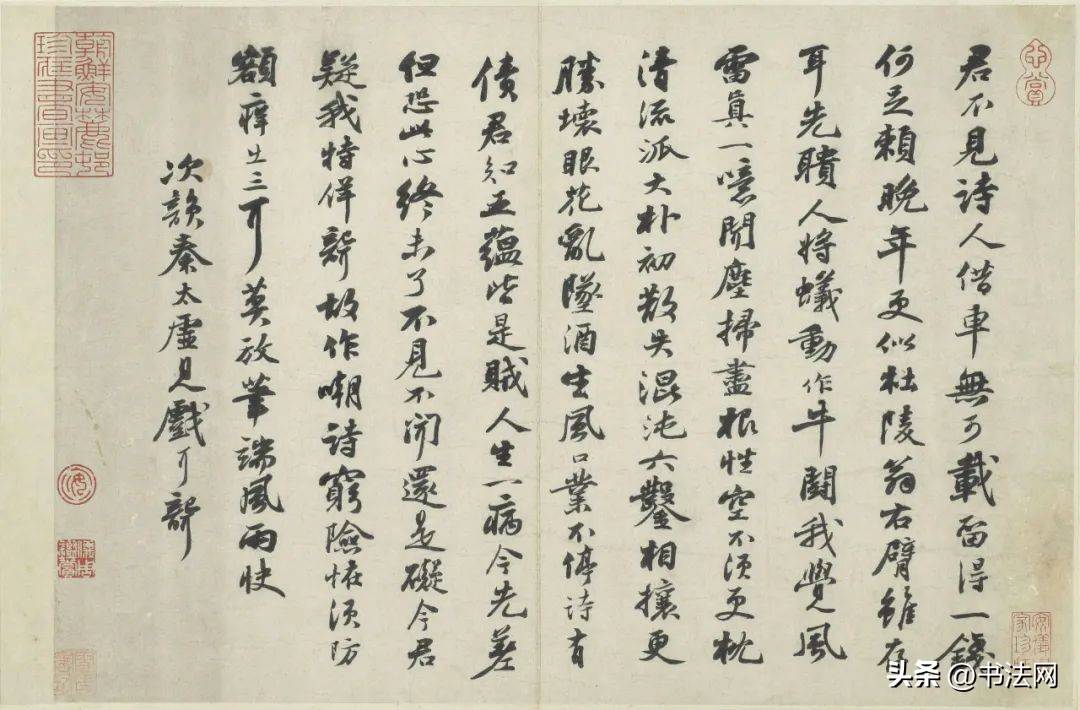 君不見詩人借車無可載留得一錢
何足賴晚年更似杜陵翁右臂雖存
耳先聵人將蟻動作牛鬭我覺風
雷真一噫聞塵掃盡根性空不須更枕
清流派大朴初散失混沌六鑿相攘更
勝壞眼花亂墜酒生風口業不停詩有
債君知五蘊皆是賊人生一病今先差
但恐此心終未了不見不聞還是礙今君
疑我特佯聾故作嘲詩窮險怪須防
額癢出三耳莫放筆端風雨快
次韻秦太虛見戲耳聾
头条 @书法网